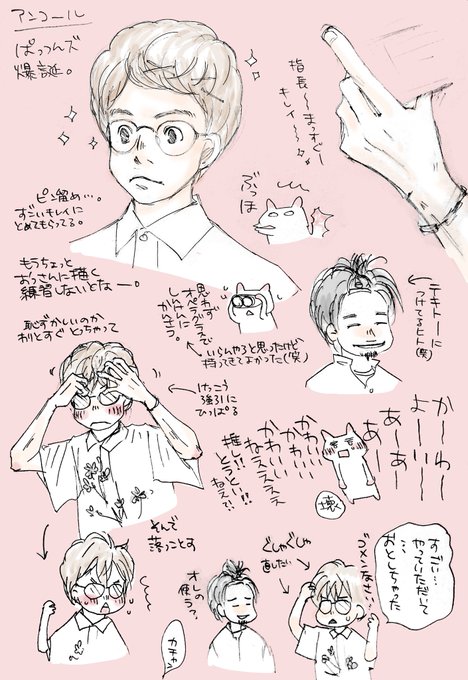 アンコール
ぱっつんズ
爆誕。
指長〜まっすぐー
キレイ〜
ピン留め…。
ずごいキレイに
とめてもらってる。
ぶっほ
もうちょっと
おっさんに描く
練習しないとなー。
思わず
オペラグラスで
しんけんに
かくにん
いらんやろと思ったけど
持ってきてよかった(笑)
テキトーに
つけてるヒト(笑)
恥ずかしいのか
わりとすぐとっちゃって
けっこう
強引に
ひっぱる
かーわー
よーいーー
あーあー
あー
かわいい
かわいい
ねえええええ
推し!!
とうとい!!
ねえで!!
壊
そんで
落っことす
オレの
使う?
カチャン
ぐしゃぐしゃ
直した…
ゴメンなさい…
すごい…
やっていただいて
…
おとしちゃった